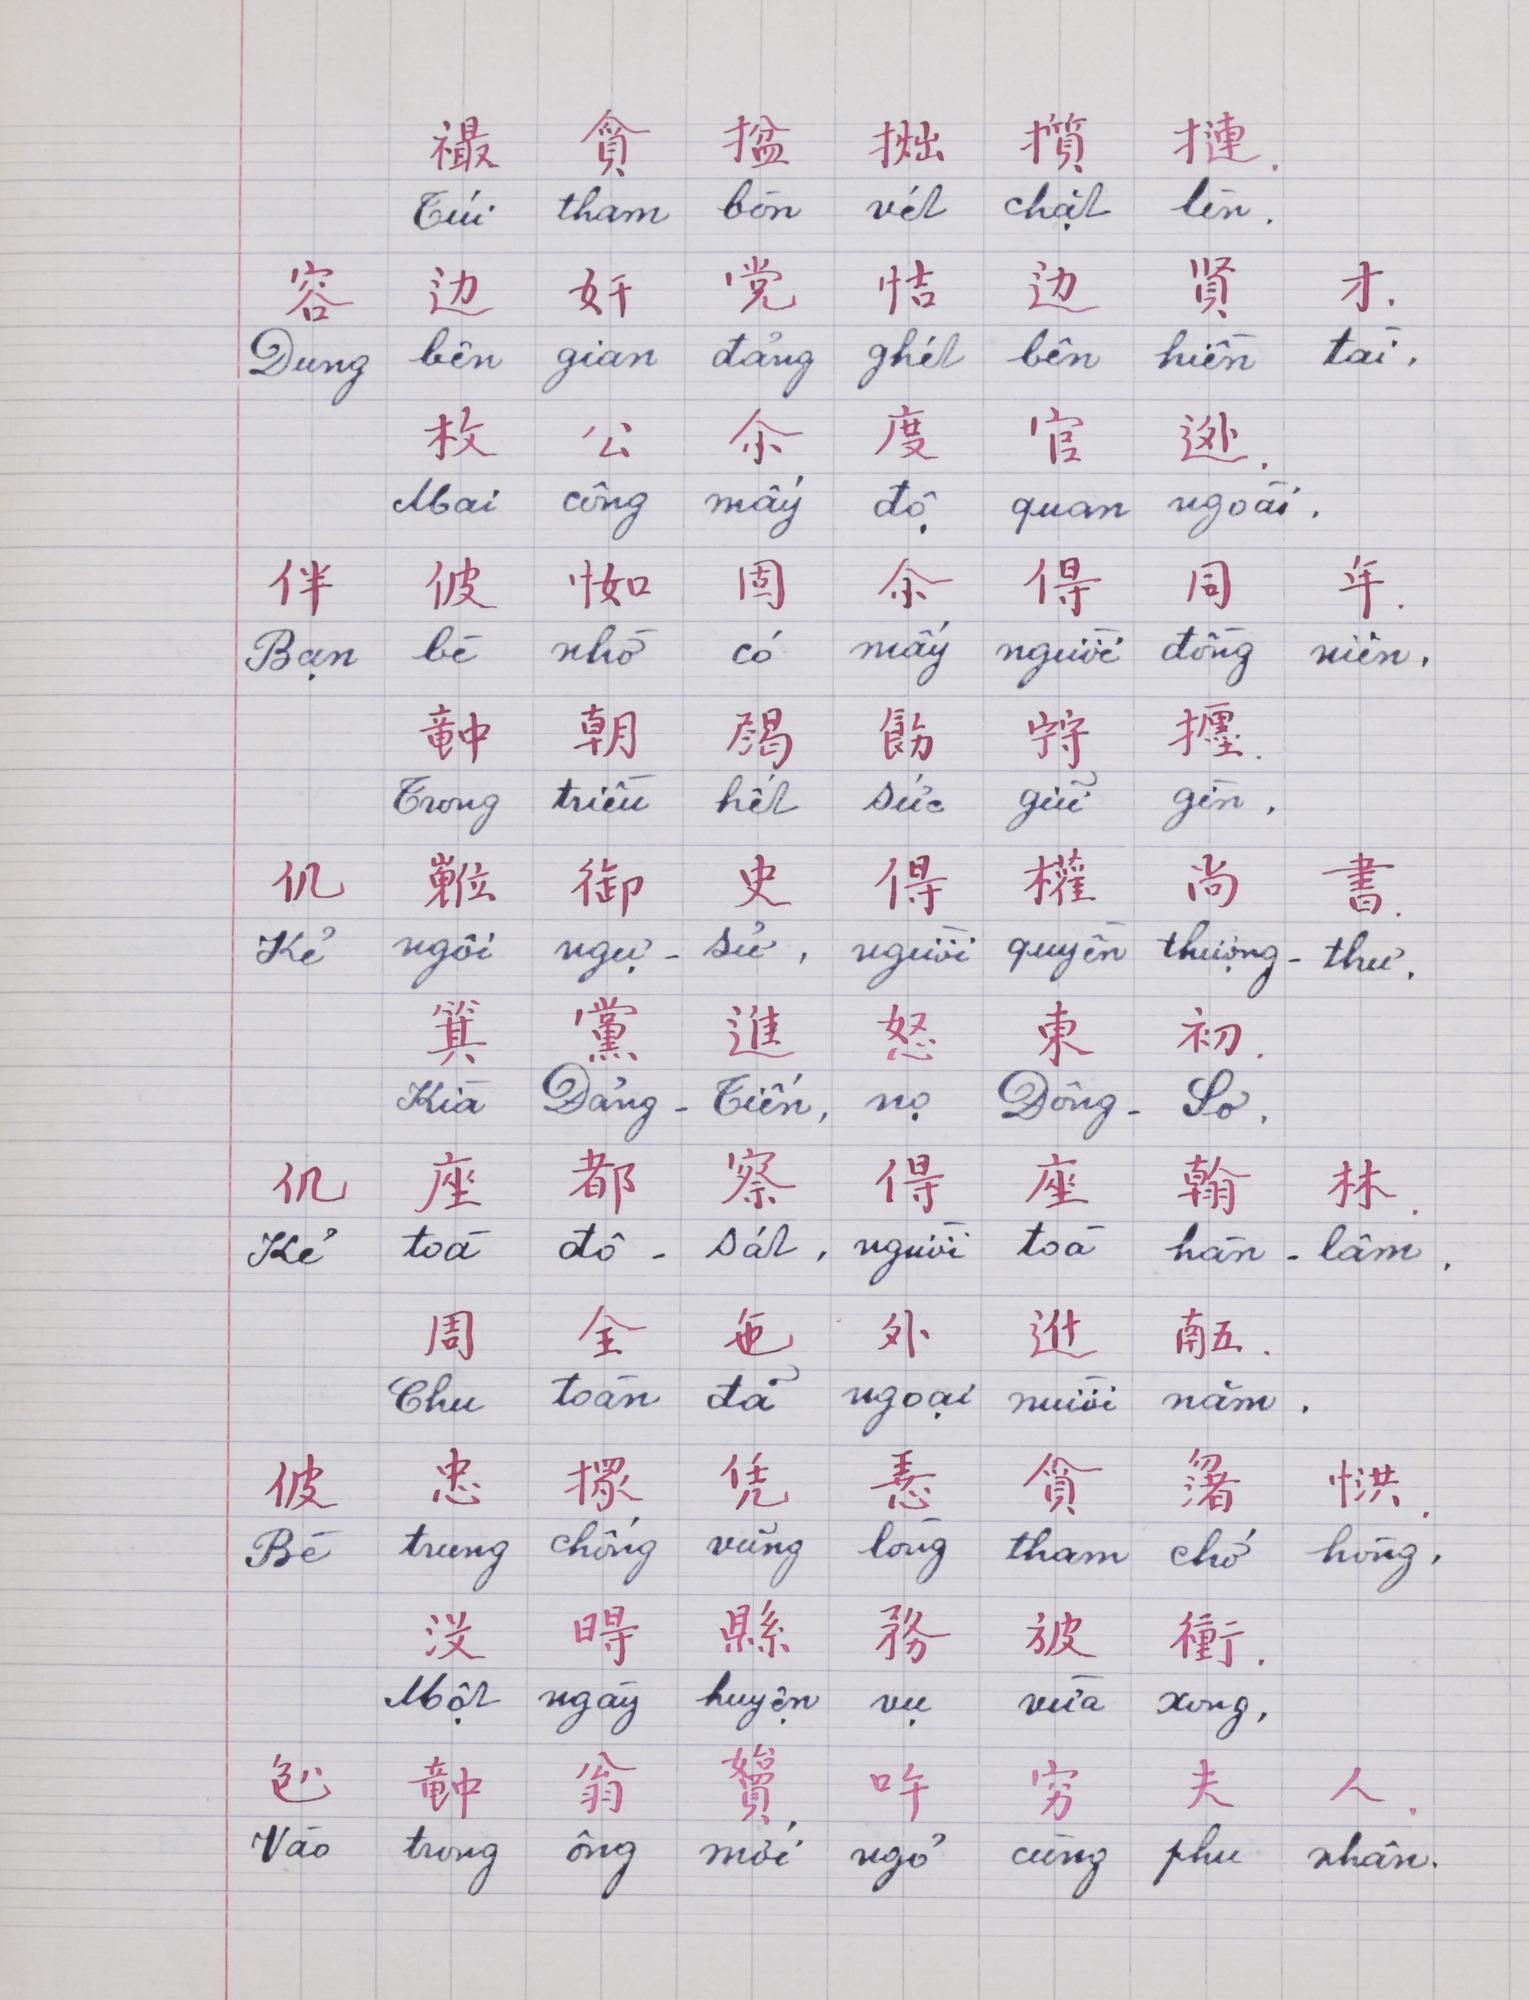 襊貪搵㧪攢摙.
Túi tham bòn vét chặt lèn.
容边奸党恄边賢才.
Dung bên gian đảng ghét bên hiền tài.
枚公尒度官逊.
Mai công mấy độ quan ngoài.
伴彼㤙固尒得同年.
Bạn bè nhờ có mấy người đồng niên.
𥪝朝歇飭㝋㨙.
Trong triều hết sức giữ gìn.
仉𡾵御史得權尚書.
Kẻ ngôi ngự - sử, người quyền thượng - thư.
箕黨進怒東初.
Kìa Đảng - Tiến, nọ Đông - Sơ.
仉座都察得座翰林.
Kẻ toà đô - sát, người toà hàn - lâm.
周全㐌外𨑮𠄼.
Chu toàn đã ngoại mười năm.
彼忠㨯凭𢚸貪渚㤨.
Bè trung chống vững lòng tham chớ hòng.
没㝵縣務㱔衝.
Một ngày huyện vụ vừa xong,
𠓨𥪝翁㵋吘穷夫人.
Vào trong ông mới ngỏ cùng phu nhân.